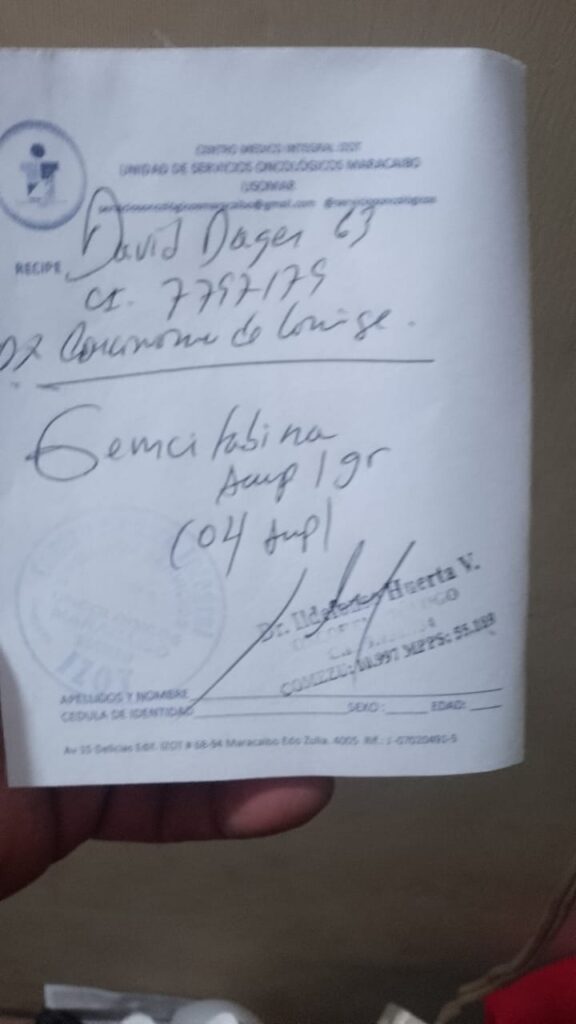 CENTRO MEDICO INTEGRAL IZOT
UNIDAD DE SERVICIOS ONCOLOGICOS MARACAIBO
USOMAR
serviciosoncologicosmaracaibo@gmail.com @serviciosoncologicos
RECIPE David Dager 63
CI. 7797179
DX Carcinoma de
Gemcitabina
Amp 1gr
(04 Amp)
Dr. Ildefonso Huerta V.
COMEZU: MPPS:
APELLIDOS Y NOMBRE
CEDULA DE IDENTIDAD SEXO: EDAD:
Av 15 Delicias Edif. IZOT # 68-94 Maracaibo Edo Zulia. 4005. Rif.: J-07020491-5